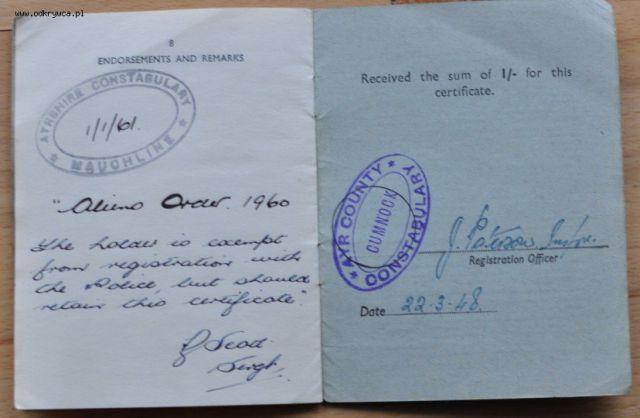 www.odkrywca.pl
8
ENDORSEMENTS AND REMARKS
AYRSHIRE CONSTABULARY
1/1/61.
MAUCHLINE
"Aliens Order. 1960
The holder is exempt
from registration with
the Police, but should
retain this certificate".
Scott
Sergt.
Received the sum of 1/- for this
certificate.
AYR COUNTY
CUMNOCK
CONSTABULARY
J. Paterson
Registration Officer
Date 22-3-48.